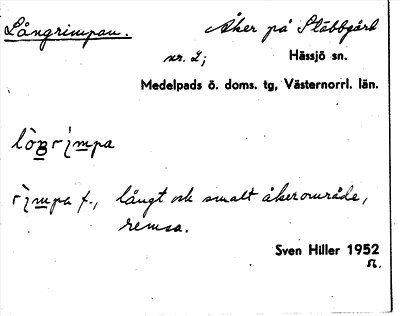 Långrimpan. Åker på Stöbbgård
nr. 2; Hässjö sn.
Medelpads ö. doms. tg, Västernorrl. län.
rimpa f., långt och smalt åkerområde,
remsa.
Sven Hiller 1952